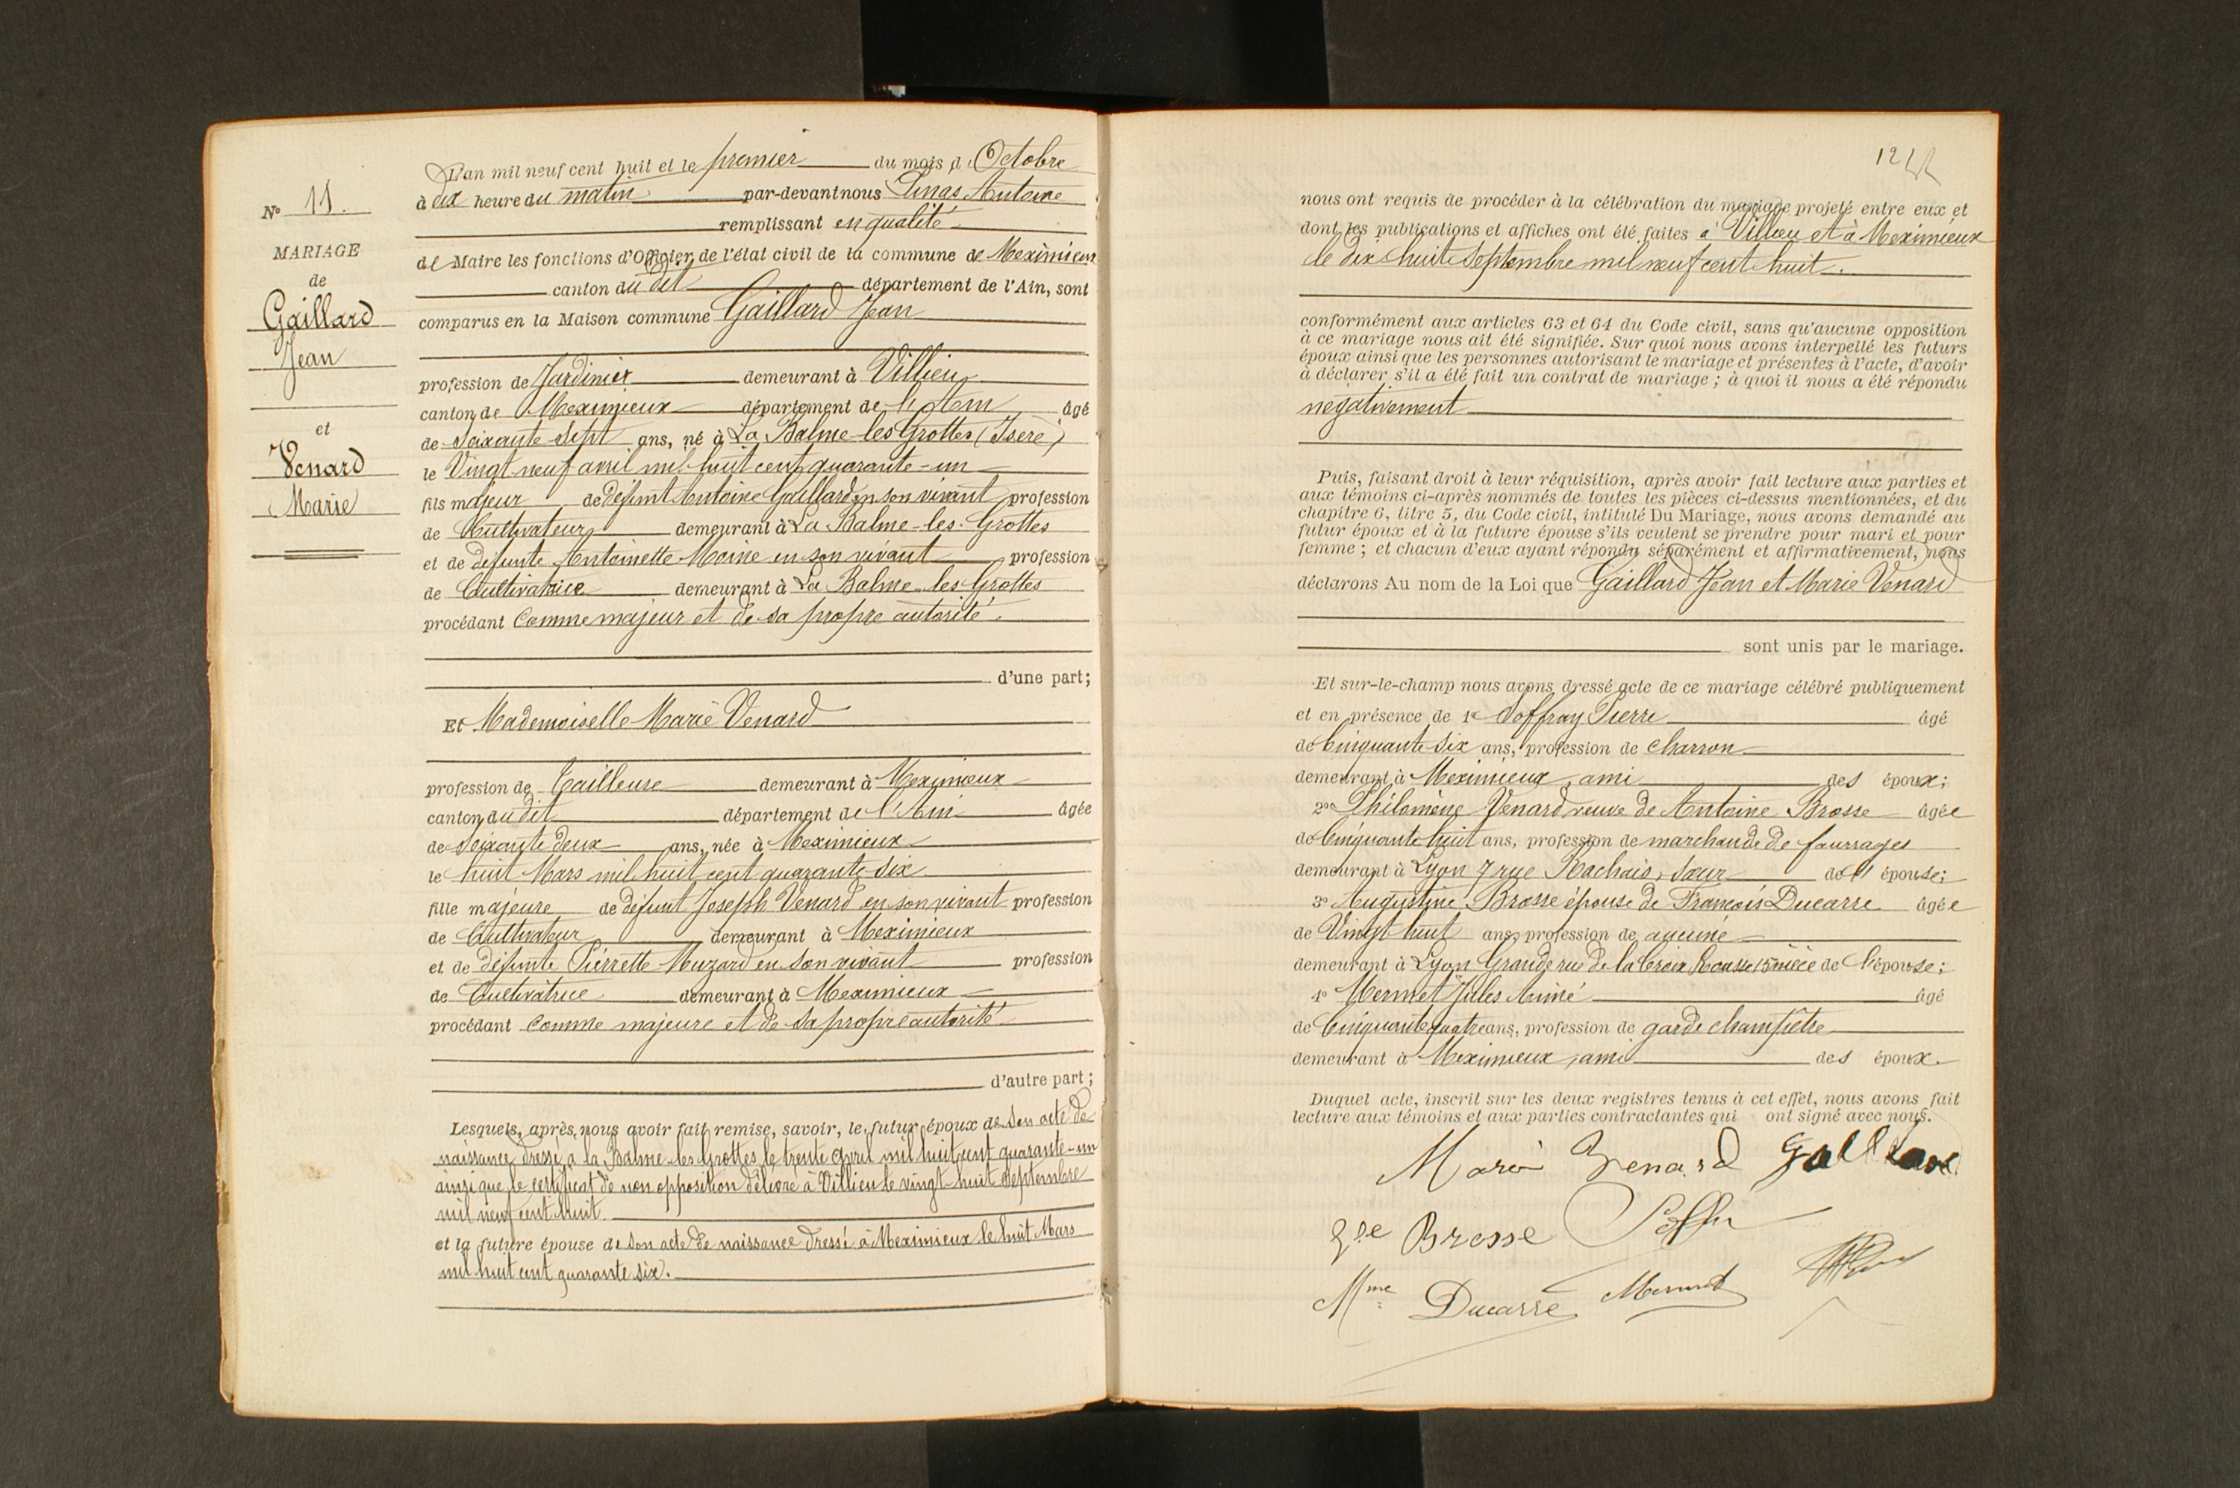 N° 11.
MARIAGE
de
Gaillard
Jean
et
Venard
Marie
L'an mil neuf cent huit et le premier du mois d'Octobre
à dix heure du matin par-devant nous Antoine
remplissant en qualité
de Maire les fonctions d'Officier de l'état civil de la commune de Meximieux
canton du dit département de l'Ain, sont
comparus en la Maison commune Gaillard Jean
profession de Jardinier demeurant à Villieu
canton de Meximieux département de l'Ain âgé
de Soixante Sept ans, né à La Balme-les-Grottes (Isère)
le Vingt neuf avril mil huit cent quarante-un
fils majeur de défunt Antoine Gaillard en son vivant profession
de Cultivateur demeurant à La Balme-les-Grottes
et de défunte Antoinette Moine en son vivant profession
de Cultivatrice demeurant à La Balme-les-Grottes
procédant Comme majeur et de sa propre autorité.
d'une part;
Et Mademoiselle Marie Venard
profession de Tailleuse demeurant à Meximieux
canton du dit département de l'Ain âgée
de Soixante deux ans, née à Meximieux
le huit Mars mil huit cent quarante six
fille majeure de défunt Joseph Venard en son vivant profession
de Cultivateur demeurant à Meximieux
et de défunte Pierrette Muzard en son vivant profession
de Cultivatrice demeurant à Meximieux
procédant comme majeure et de sa propre autorité
d'autre part;
Lesquels, après nous avoir fait remise, savoir, le futur époux de son acte de
naissance dressé à la Balme-les-Grottes le trente avril mil huit cent quarante-un
ainsi que le certificat de non opposition délivré à Villieu le vingt-huit Septembre
mil neuf cent huit.
et la future épouse de son acte de naissance dressé à Meximieux le huit Mars
mil huit cent quarante six.
12
nous ont requis de procéder à la célébration du mariage projeté entre eux et
dont les publications et affiches ont été faites à Villieu et à Meximieux
le dix huit Septembre mil neuf cent huit.
conformément aux articles 63 et 64 du Code civil, sans qu'aucune opposition
à ce mariage nous ait été signifiée. Sur quoi nous avons interpellé les futurs
époux ainsi que les personnes autorisant le mariage et présentes à l'acte, d'avoir
à déclarer s'il a été fait un contrat de mariage ; à quoi il nous a été répondu
négativement
Puis, faisant droit à leur réquisition, après avoir fait lecture aux parties et
aux témoins ci-après nommés de toutes les pièces ci-dessus mentionnées, et du
chapitre 6, titre 5, du Code civil, intitulé Du Mariage, nous avons demandé au
futur époux et à la future épouse s'ils veulent se prendre pour mari et pour
femme ; et chacun d'eux ayant répondu séparément et affirmativement, nous
déclarons Au nom de la Loi que Gaillard Jean et Marie Venard
sont unis par le mariage.
Et sur-le-champ nous avons dressé acte de ce mariage célébré publiquement
et en présence de 1° Soffray Pierre âgé
de Cinquante six ans, profession de charron
demeurant à Meximieux, ami des époux;
2° Philomène Venard veuve de Antoine Brosse âgée
de Cinquante huit ans, profession de marchande de fourrages
demeurant à Lyon 7 rue Rachais, sœur de l'épouse;
3° Augustine Brosse épouse de François Ducarre âgée
de Vingt huit ans, profession de aucune
demeurant à Lyon Grande rue de la Croix Rousse 15 nièce de l'épouse;
4° Mermet Jules Aimé âgé
de Cinquante quatre ans, profession de garde champêtre
demeurant à Meximieux, ami des époux.
Duquel acte, inscrit sur les deux registres tenus à cet effet, nous avons fait
lecture aux témoins et aux parties contractantes qui ont signé avec nous.
Marie Venard Gaillard
Brosse
Mme Ducarre Mermet